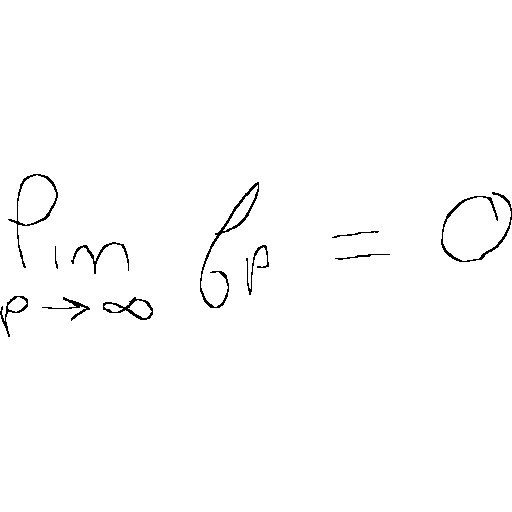 \lim_{p \to \infty} b_p = 0